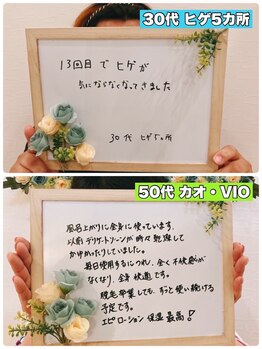 30代 ヒゲ5カ所
13回目で ヒゲが
気にならなくなってきました
30代 ヒゲ5ヵ所
50代 カオ・VIO
風呂上がりに全身に使っています。
以前 デリケートゾーンが時々乾燥して
かゆかったりしていました。
毎日使用するにつれ、全く不快感が
なくなり、全身快適です。
脱毛卒業しても、ずっと使い続ける
予定です。
エピローション 保湿最高!